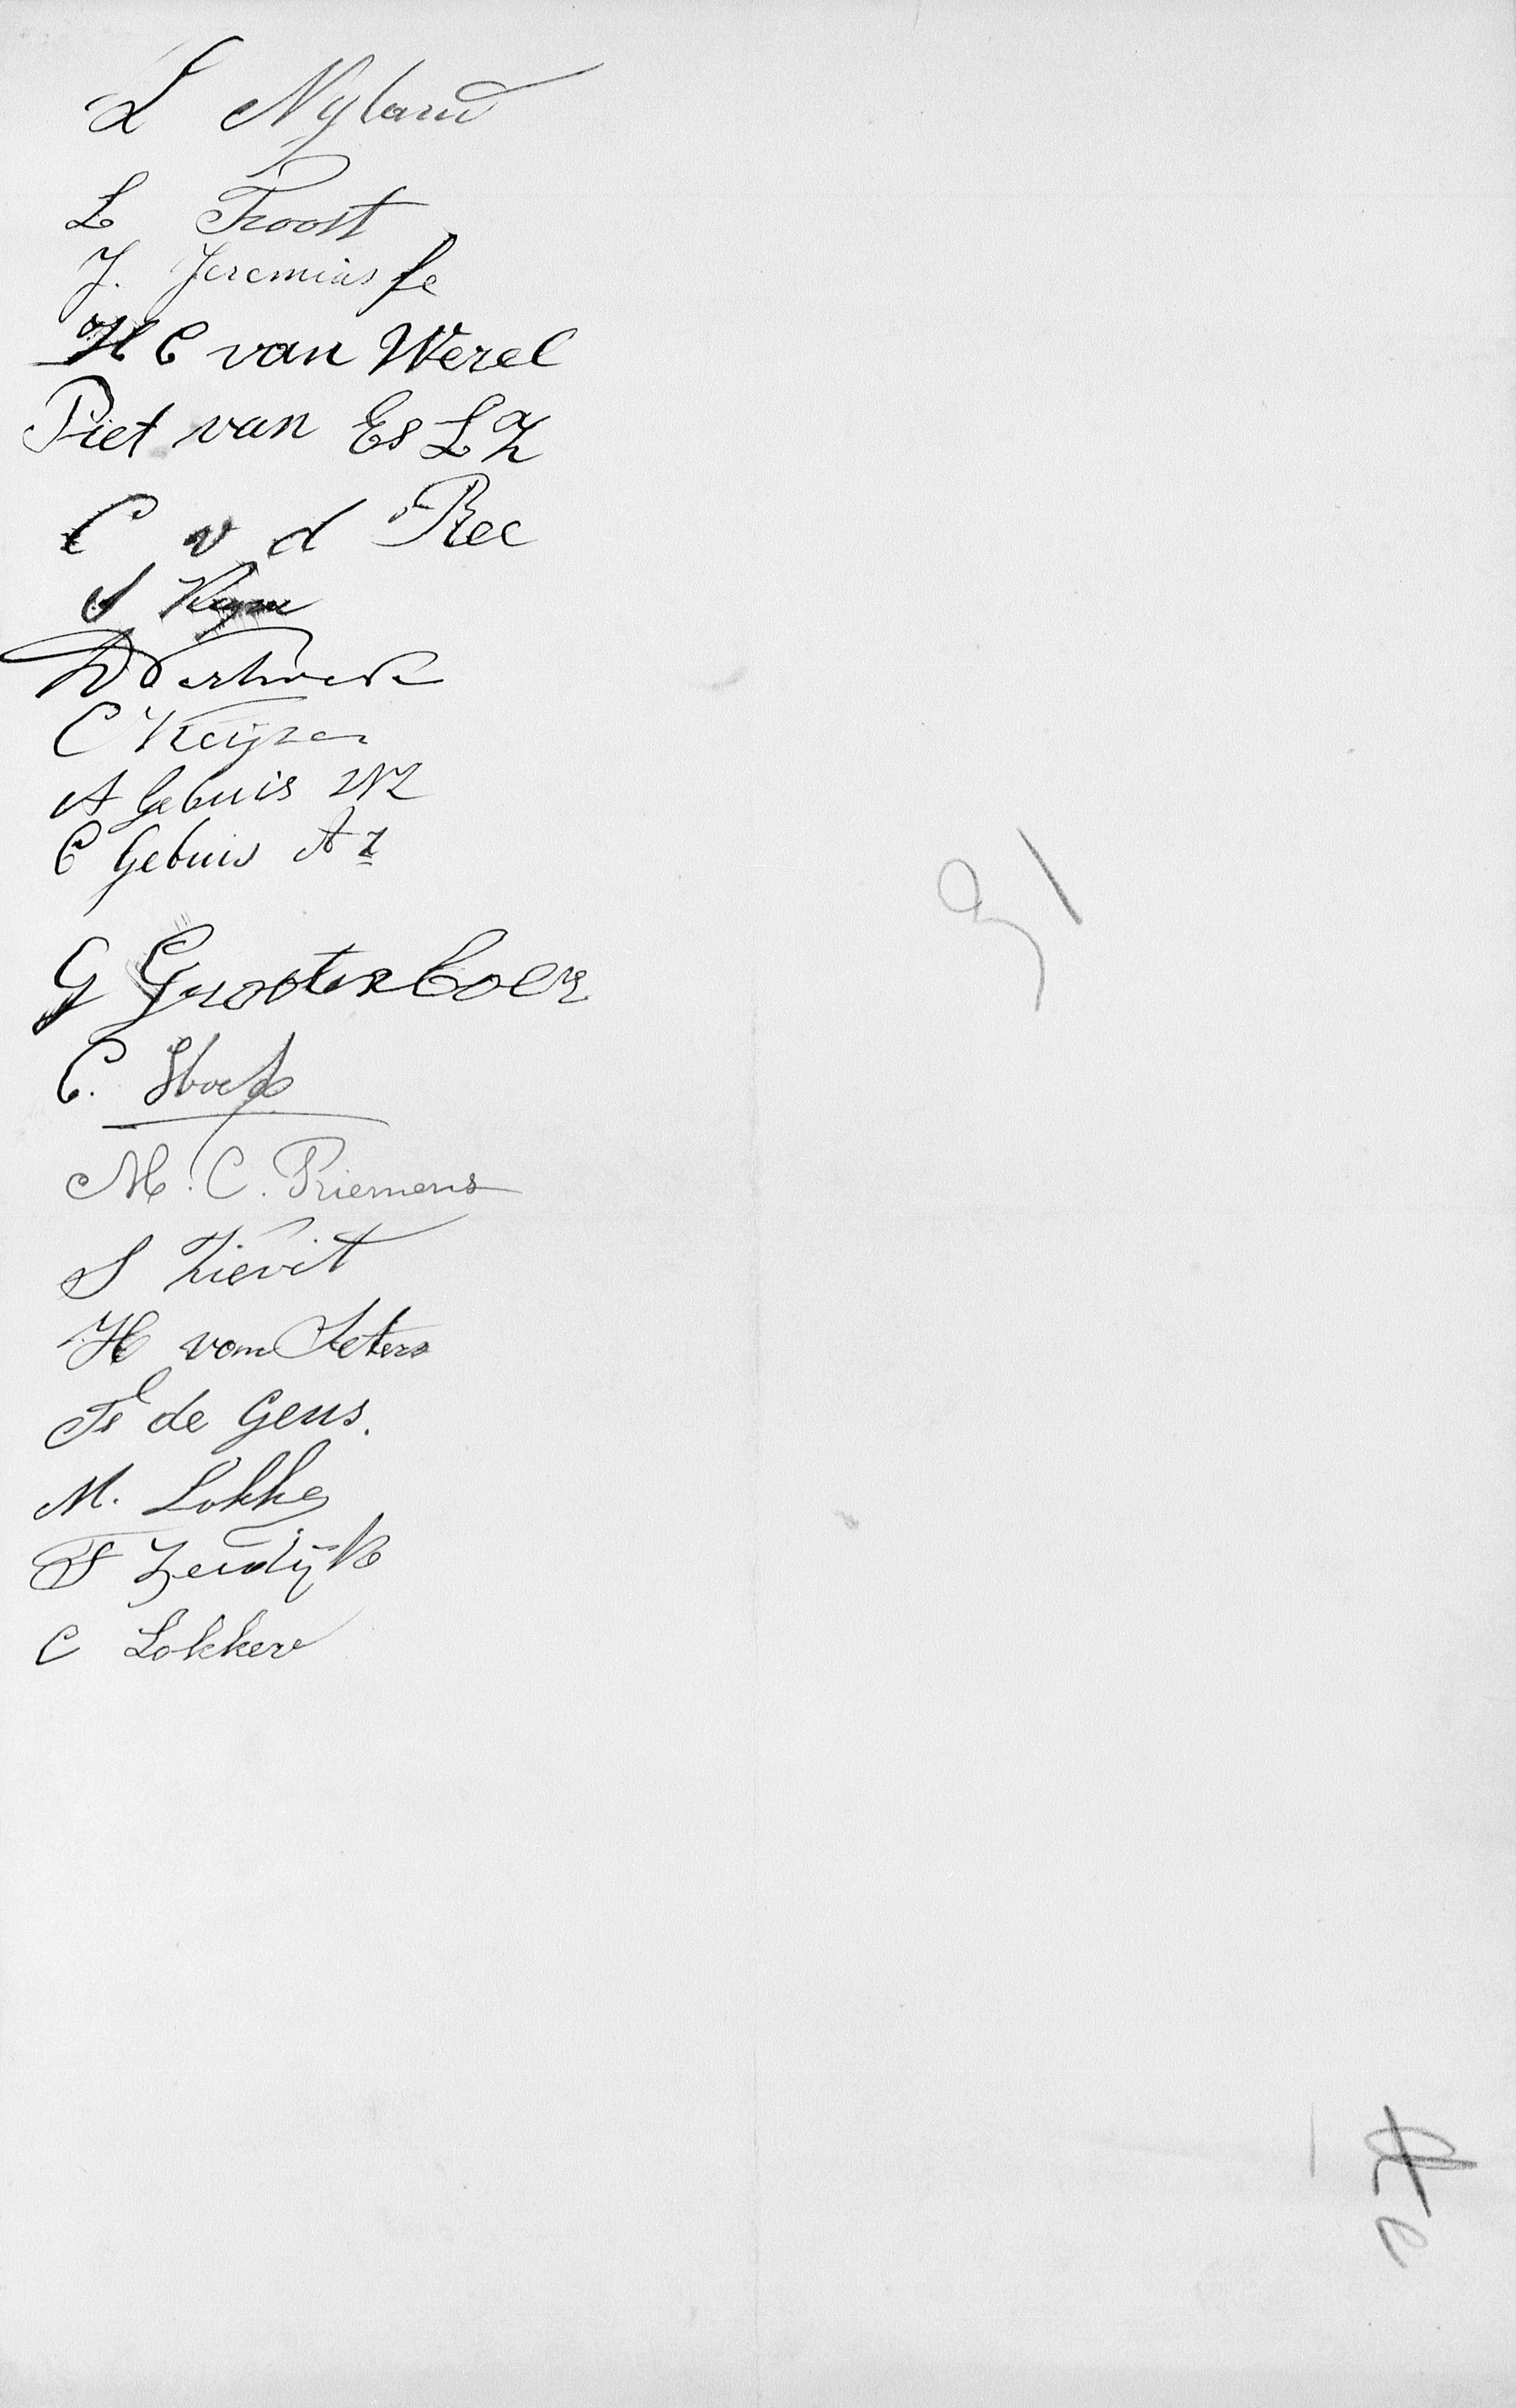 L Nyland
L Troost
J. Jeremiasse
H C van Werel
Piet van Es L Z
C v d Ree
C Keijzer
A Gebuis WZ
C Gebuis Az
G Grootenboer
C.
M. C. Priemens
S Kievit
H van Seters
de Geus.
M. Lokker
Zendijk
C Lokker